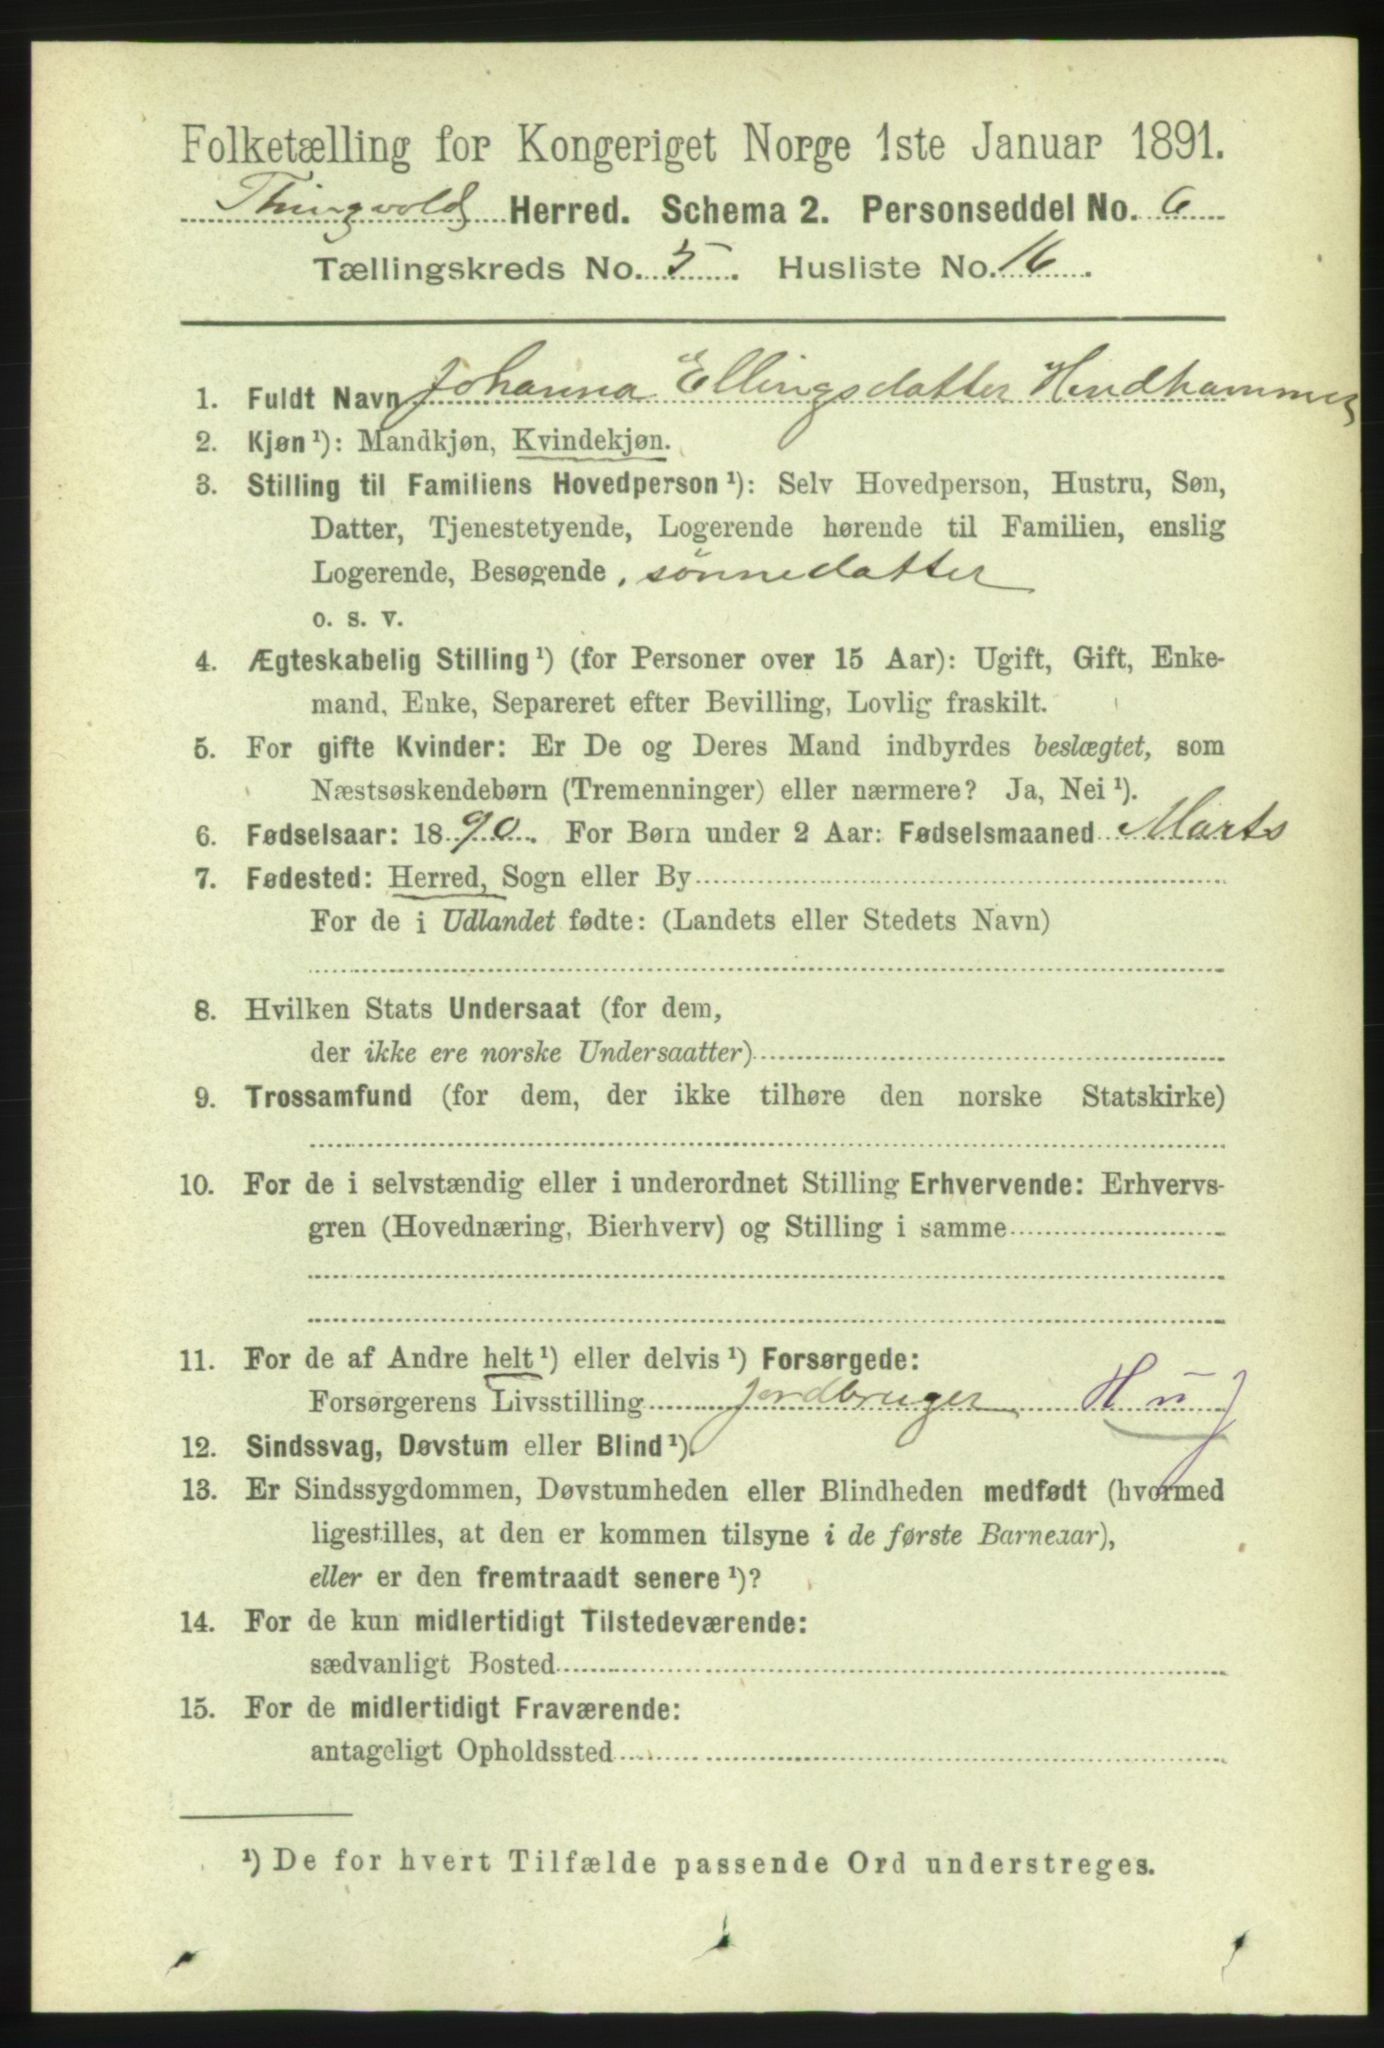 Folketælling for Kongeriget Norge 1ste Januar 1891.
Thingvold Herred. Schema 2. Personseddel No. 6
Tællingskreds No. 5. Husliste No. 16.
1. Fuldt Navn Johanna Ellingsdatter Hindhammer
2. Kjøn ¹): Mandkjøn, Kvindekjøn.
3. Stilling til Familiens Hovedperson ¹): Selv Hovedperson, Hustru, Søn,
Datter, Tjenestetyende, Logerende hørende til Familien, enslig
Logerende, Besøgende, sønnedatter
o. s. v.
4. Ægteskabelig Stilling ¹) (for Personer over 15 Aar): Ugift, Gift, Enke-
mand, Enke, Separeret efter Bevilling, Lovlig fraskilt.
5. For gifte Kvinder: Er De og Deres Mand indbyrdes beslægtet, som
Næstsøskendebørn (Tremenninger) eller nærmere? Ja, Nei ¹).
6. Fødselsaar: 1890. For Børn under 2 Aar: Fødselsmaaned Marts
7. Fødested: Herred, Sogn eller By
For de i Udlandet fødte: (Landets eller Stedets Navn)
8. Hvilken Stats Undersaat (for dem,
der ikke ere norske Undersaatter)
9. Trossamfund (for dem, der ikke tilhøre den norske Statskirke)
10. For de i selvstændig eller i underordnet Stilling Erhvervende: Erhvervs-
gren (Hovednæring, Bierhverv) og Stilling i samme
11. For de af Andre helt ¹) eller delvis ¹) Forsørgede:
Forsørgerens Livsstilling Jordbruger H u J
12. Sindssvag, Døvstum eller Blind ¹).
13. Er Sindssygdommen, Døvstumheden eller Blindheden medfødt (hvormed
ligestilles, at den er kommen tilsyne i de første Barneaar),
eller er den fremtraadt senere ¹)?
14. For de kun midlertidigt Tilstedeværende:
sædvanligt Bosted
15. For de midlertidigt Fraværende:
antageligt Opholdssted
¹) De for hvert Tilfælde passende Ord understreges.